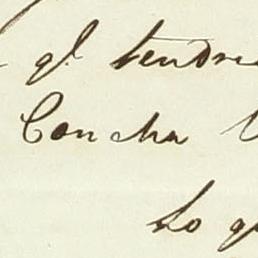 ql tendre
Concha
Lo q